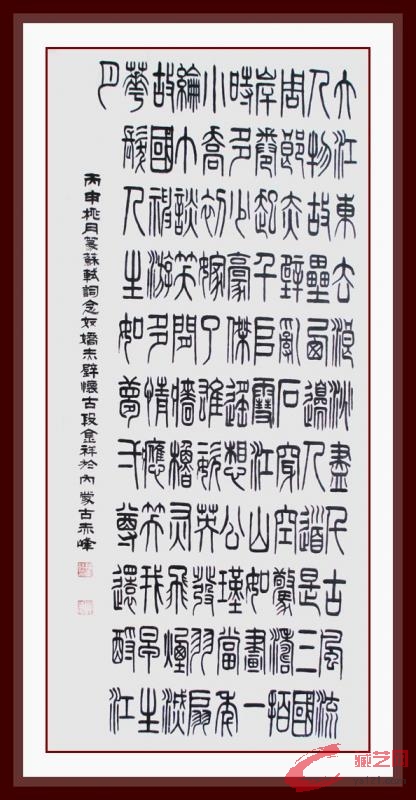 大江東去浪淘盡千古風流
人物故壘西邊人道是三國
周郎赤壁亂石穿空驚濤拍
岸卷起千堆雪江山如畫一
時多少豪傑遙想公瑾當年
小喬初嫁了雄姿英發羽扇
綸巾談笑間牆櫓灰飛煙滅
故國神游多情應笑我早生
華髮人生如夢一尊還酹江
月
丙申桃月篆蘇軾詞念奴嬌赤壁懷古段金祥於內蒙古赤峰